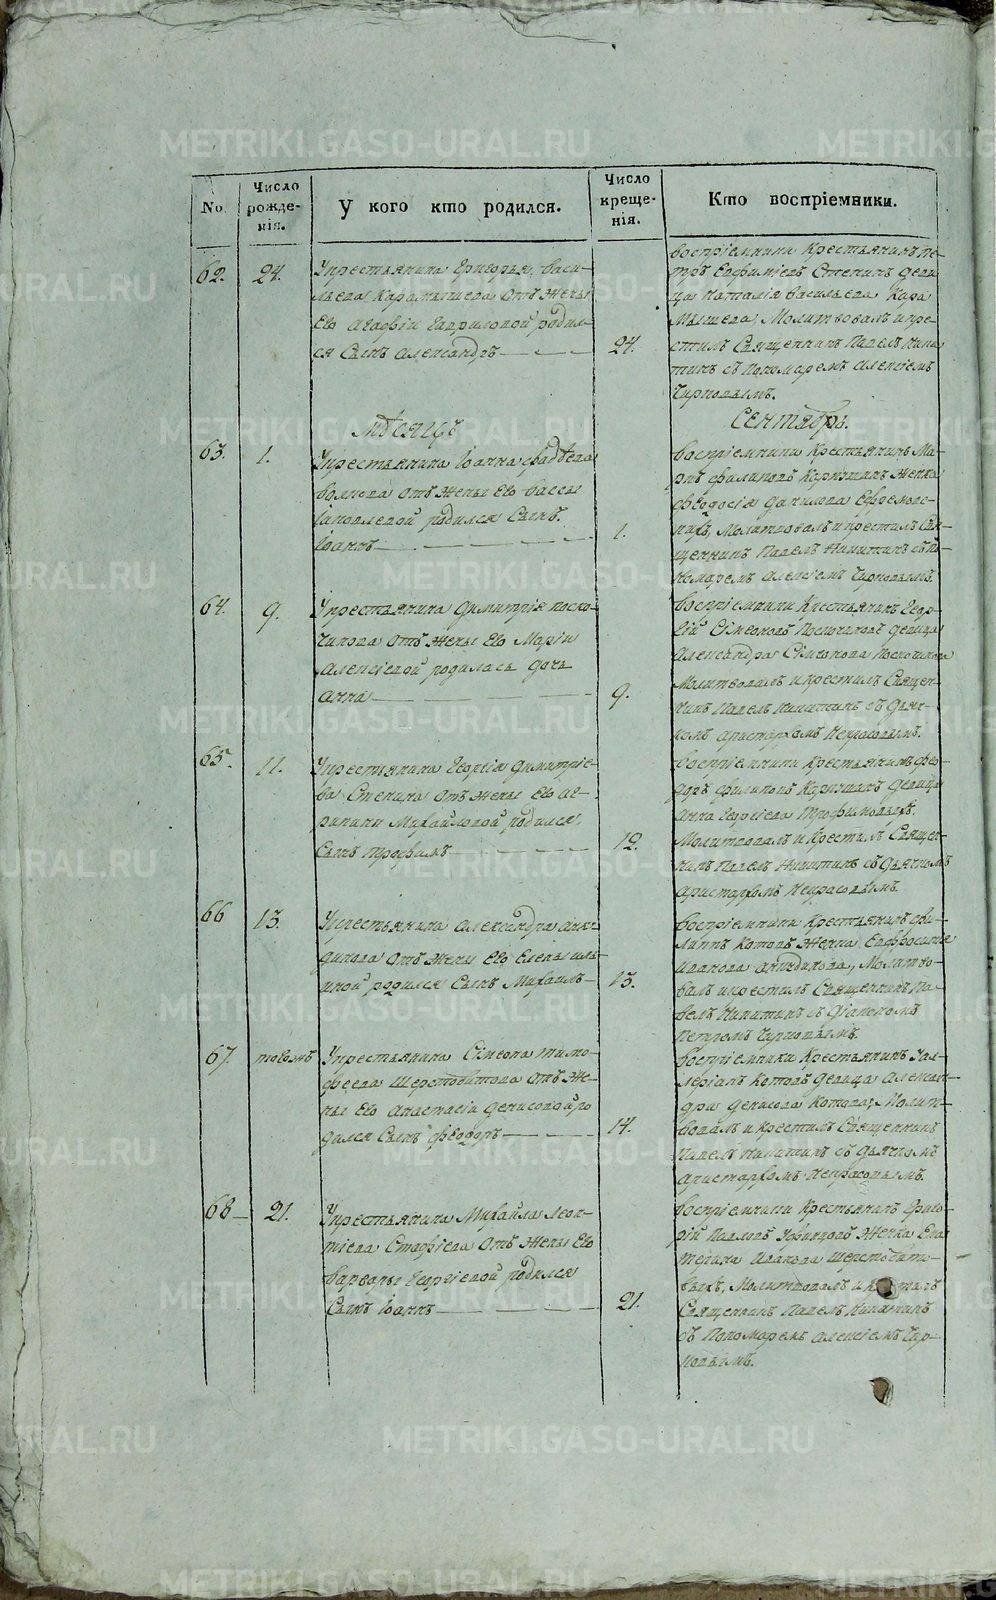 METRIKI.GASO-URAL.RU
No.
Число рожде-
нія.
У кого кто родился.
Число креще-
нія.
Кто воспріемники.
62.
24.
У крестьянина Григорья Васи-
льева Карамышева отъ жены
Его Агафіи Гавриловой родил-
ся Сынъ Александръ
24.
Воспріемники Крестьянинъ Пе-
тръ Евфиміевъ Степинъ деви-
ца Наталія Васильева Кара
мышева Молитвовалъ и кре-
стилъ Священникъ Павелъ Ники
тинъ съ Пономаремъ Алексіемъ
Мѣсяцъ
Сентябрь.
63.
1.
У крестьянина Іоанна Фадѣева
отъ жены Его Вассы
родился Сынъ.
Іоаннъ
1.
Воспріемники Крестьянинъ Ма-
Филиповъ женка
Феодосія Данилова
Молитвовалъ и крестилъ Свя-
щенникъ Павелъ Никитинъ съ По-
номаремъ Алексіемъ
64.
9.
У крестьянина Димитрія Поско-
чинова отъ жены Его Маріи
Алексіевой родилась дочь
Анна
9.
Воспріемники Крестьянинъ Геор-
гій Сімеоновъ Поскочиновъ девица
Александра Сімеонова Поскочинова
Молитвовалъ и крестилъ Священ-
никъ Павелъ Никитинъ съ Дьяч-
комъ Аристархомъ Некрасовымъ.
65.
11.
У крестьянина Георгія Димитріе-
ва Степина отъ жены Его Аг-
рипины Михайловой родился
Сынъ Трофимъ
12.
Воспріемники Крестьянинъ Фео-
доръ Филиповъ девица
Анна Георгіева Трофимовыхъ.
Молитвовалъ и Крестилъ Священ-
никъ Павелъ Никитинъ съ Дьячкомъ
Аристархомъ Некрасовымъ.
66
13.
У крестьянина Александра
отъ жены Его Елены Иль-
иной родился Сынъ Михаилъ
13.
Воспріемники Крестьянинъ Фи-
липпъ Котовъ женка Евфросинія
Иванова Молитво-
валъ и крестилъ Священникъ Па-
велъ Никитинъ съ Діакономъ
Петромъ
67.
тогожъ
У крестьянина Сімеона Тимо-
феева Шерстобитова отъ же-
ны Его Анастасіи Денисовой ро
дился Сынъ Феодоръ
14.
Воспріемники Крестьянинъ Ва-
леріанъ Котовъ девица Алексан-
дра Денисова Котова; Молит-
вовалъ и крестилъ Священникъ
Павелъ Никитинъ съ Дьячкомъ
Аристархомъ Некрасовымъ.
68
21.
У крестьянина Михайла Леон-
тіева отъ жены Его
Варвары Георгіевой родился
Сынъ Іоаннъ
21.
Воспріемники Крестьянинъ Григо-
рій Павловъ женка Ека-
терина Иванова Шерстобито-
выхъ, Молитвовалъ и крестилъ
Священникъ Павелъ Никитинъ
съ Пономаремъ Алексіемъ